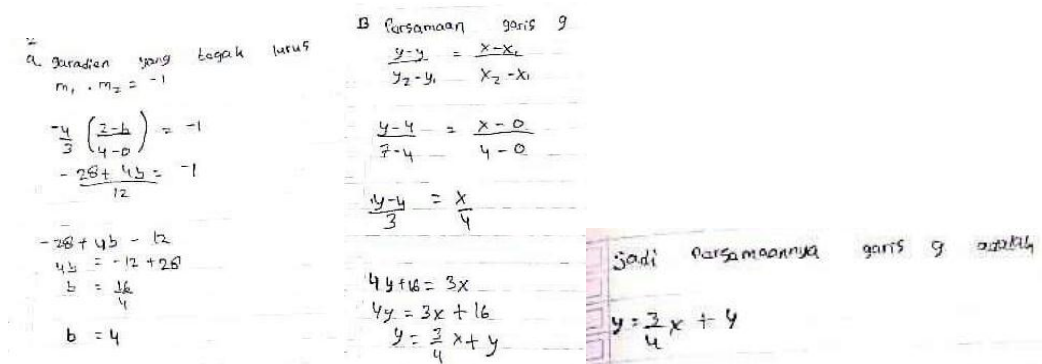 2
a. garadien yang tegak lurus
m₁ . m₂ = -1
-4/3 (7-b / 4-0) = -1
-28 + 4b / 12 = -1
-28 + 4b - 12
4b = -12 + 28
b = 16/4
b = 4
B Parsamaan garis g
y-y / y₂-y₁ = x-x₁ / x₂-x₁
y-4 / 7-4 = x-0 / 4-0
y-4 / 3 = x/4
4y+16 = 3x
4y = 3x + 16
y = 3/4 x + y
jadi Parsamaannya garis g adalah
y = 3/4 x + 4